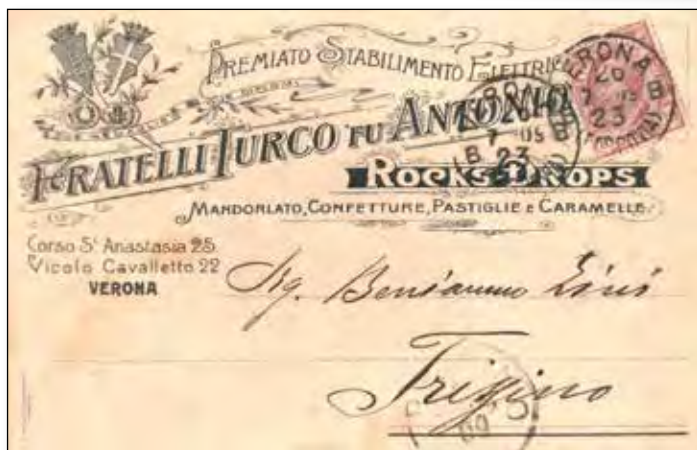 PREMIATO STABILIMENTO ELETTRICO
FRATELLI TURCO FU ANTONIO
ROCKS DROPS
MANDORLATO, CONFETTURE, PASTIGLIE E CARAMELLE.
Corso Sᵗ Anastasia 25
Vicolo Cavalletto 22
VERONA
VERONA
26
7 05
B 23
Sig.
Trissino